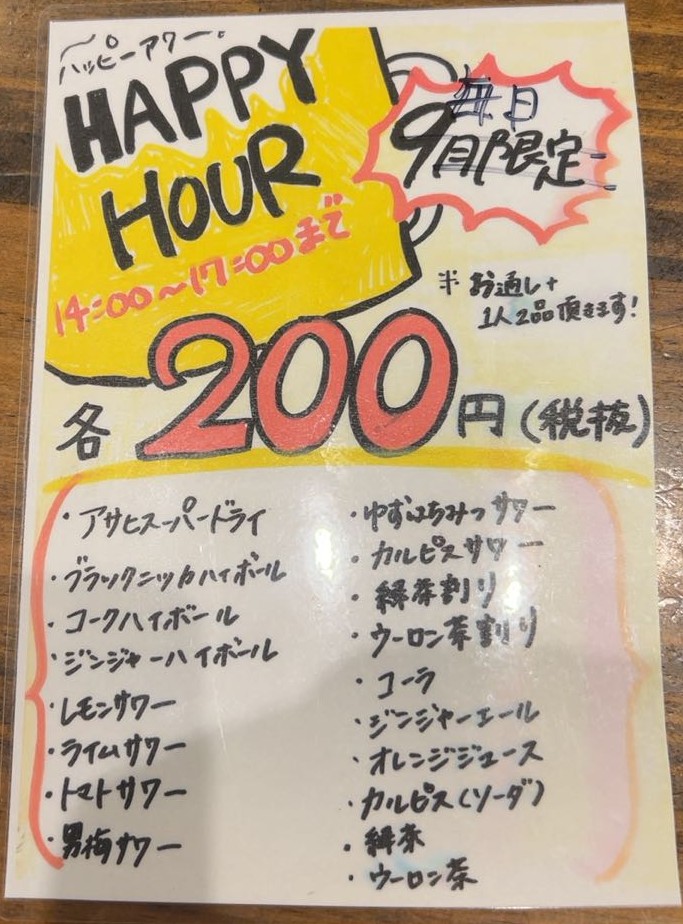 ハッピーアワー。
HAPPY
HOUR
14:00〜17:00まで
毎日
9月限定
※ お通し+
1人2品頂きます!
各200円(税抜)
・アサヒスーパードライ
・ブラックニッカハイボール
・コークハイボール
・ジンジャーハイボール
・レモンサワー
・ライムサワー
・トマトサワー
・男梅サワー
・ゆずはちみつサワー
・カルピスサワー
・緑茶割り
・ウーロン茶割り
・コーラ
・ジンジャーエール
・オレンジジュース
・カルピス(ソーダ)
・緑茶
・ウーロン茶